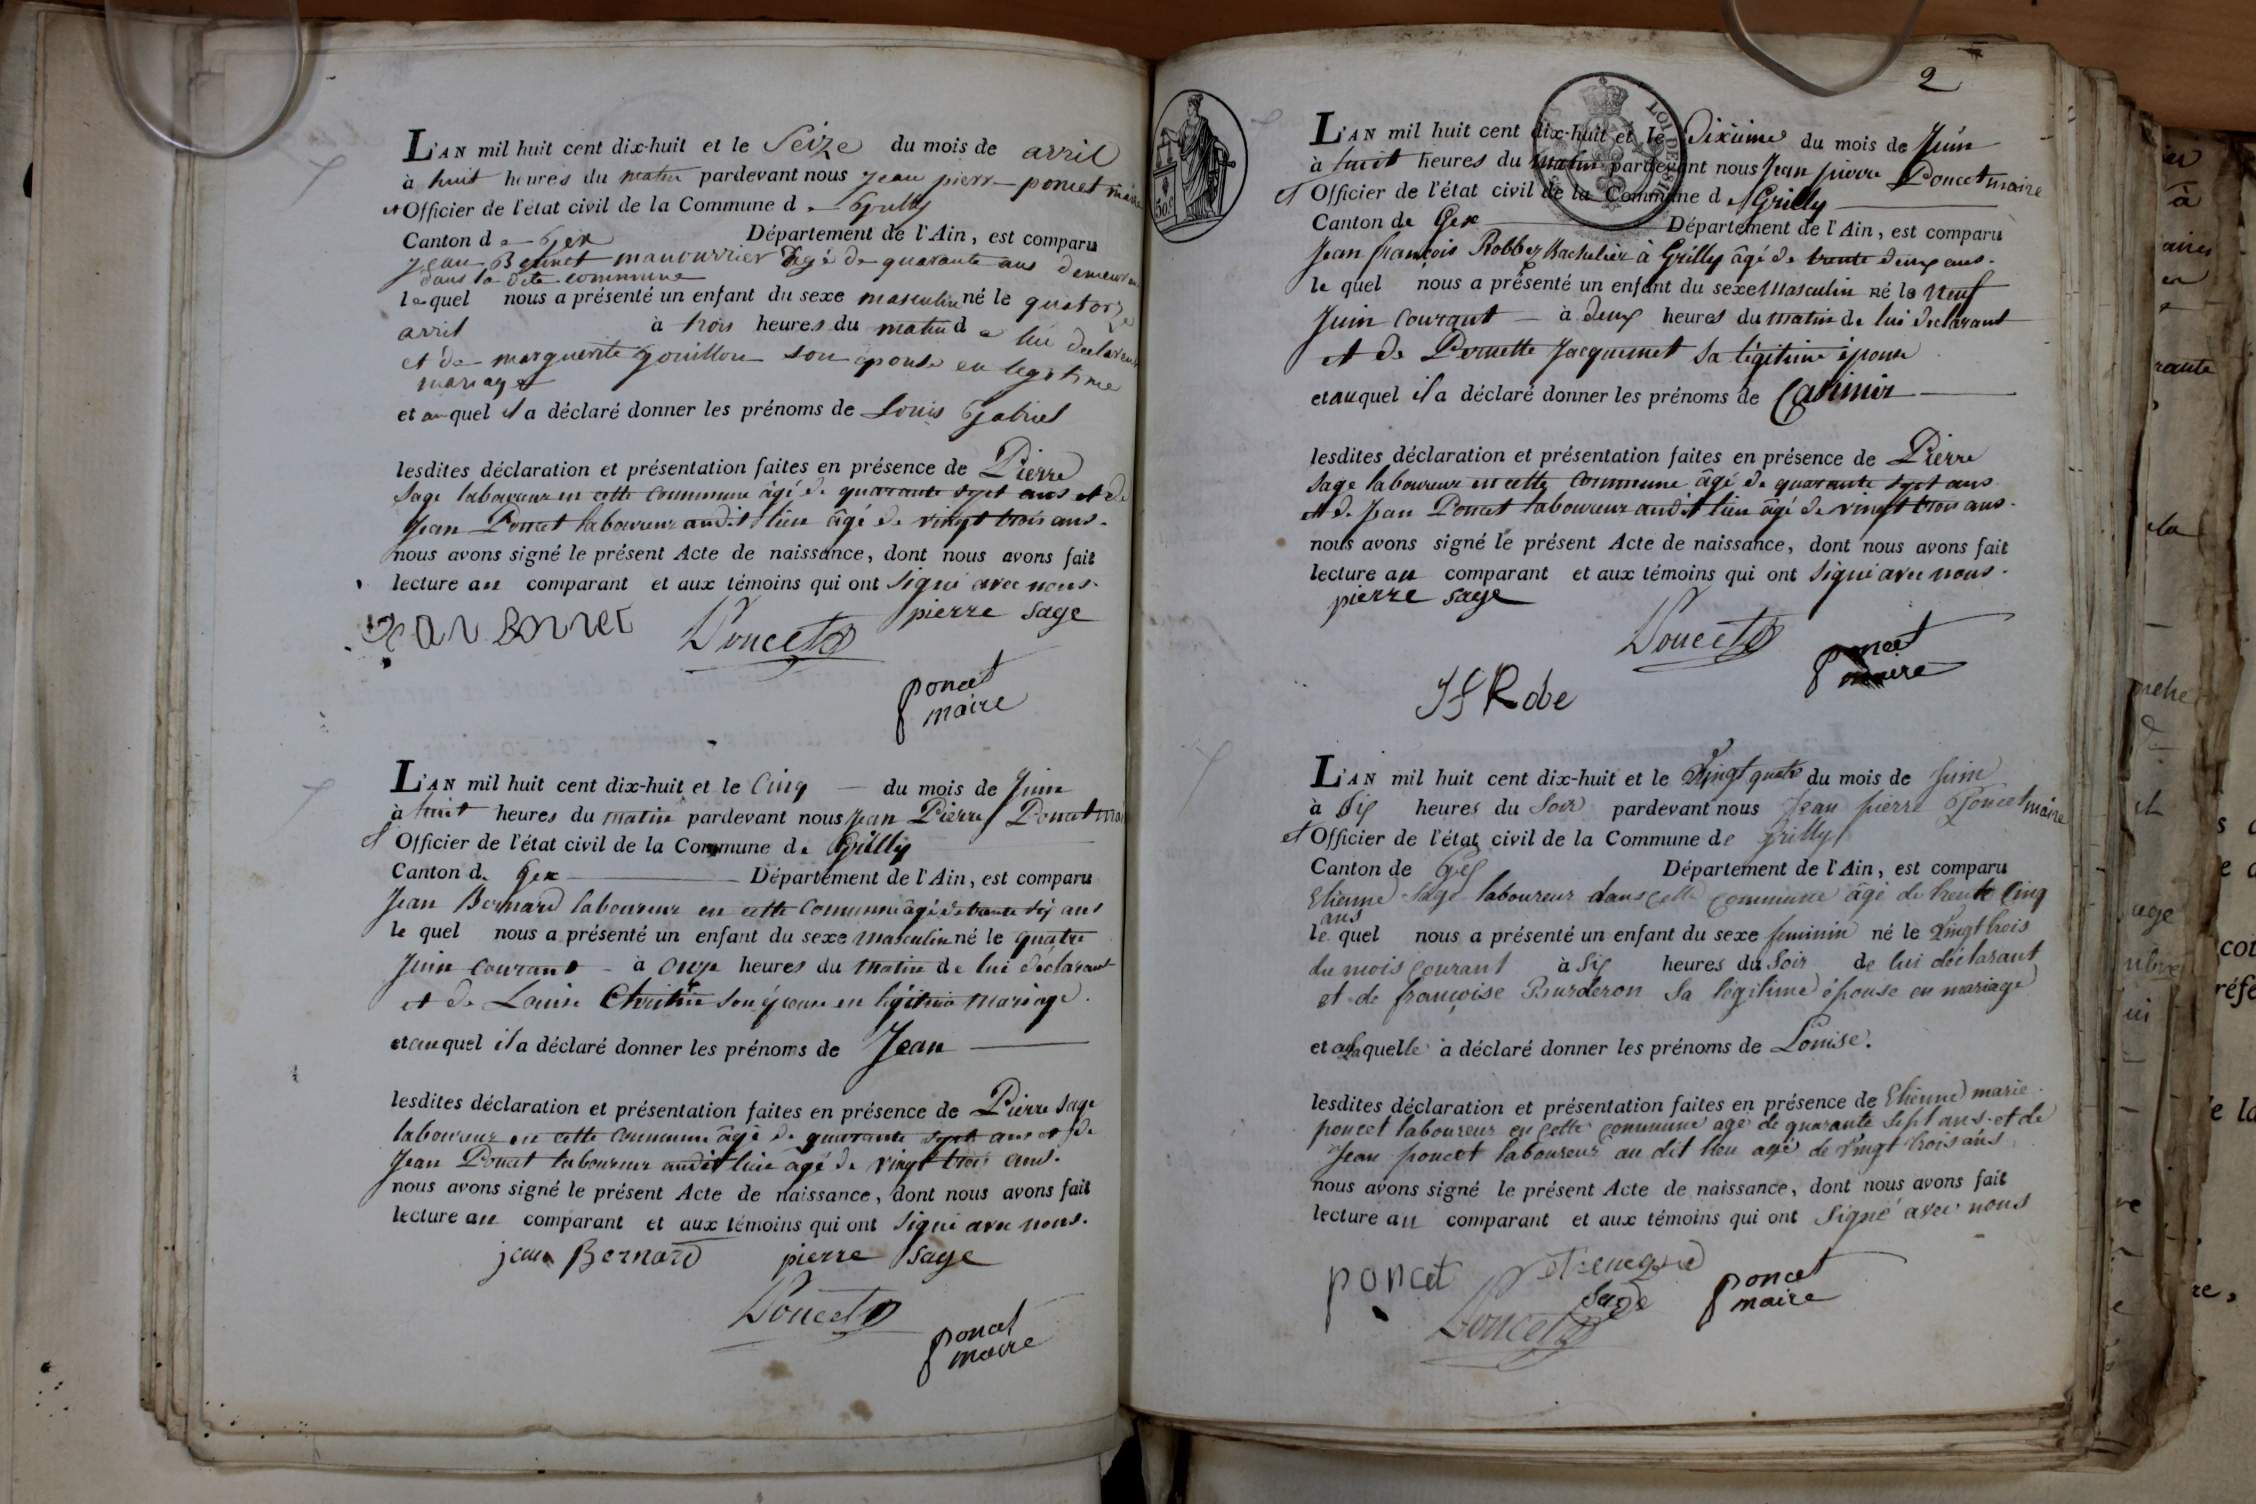 L'AN mil huit cent dix-huit et le Seize du mois de avril
à huit heures du matin pardevant nous jean pierre poncet maire
et Officier de l'état civil de la Commune de Grilly
Canton de Gex Département de l'Ain, est comparu
jean Bonnet manouvrier âgé de quarante ans demeurant
dans la dite commune
lequel nous a présenté un enfant du sexe masculin né le quatorze
avril à trois heures du matin de lui declarant
et de marguerite gouillou son epouse en legitime
mariage
et auquel il a déclaré donner les prénoms de Louis Gabriel
lesdites déclaration et présentation faites en présence de Pierre
Sage laboureur en cette Commune âgé de quarante sept ans et de
Jean Poncet laboureur audit lieu âgé de vingt trois ans.
nous avons signé le présent Acte de naissance, dont nous avons fait
lecture au comparant et aux témoins qui ont Signé avec nous.
jean Bonnet Poncet pierre sage
poncet
maire
L'AN mil huit cent dix-huit et le Cinq du mois de Juin
à huit heures du matin pardevant nous Jean Pierre Poncet
et Officier de l'état civil de la Commune de Grilly
Canton de Gex Département de l'Ain, est comparu
Jean Bernard laboureur en cette Commune âgé de trente six ans
le quel nous a présenté un enfant du sexe Masculin né le quatre
Juin courant à onze heures du matin de lui declarant
et de Louise Christin son épouse en légitime mariage.
et auquel il a déclaré donner les prénoms de Jean
lesdites déclaration et présentation faites en présence de Pierre Sage
laboureur en cette Commune âgé de quarante sept ans et de
Jean Poncet laboureur audit lieu âgé de vingt trois ans.
nous avons signé le présent Acte de naissance, dont nous avons fait
lecture au comparant et aux témoins qui ont Signé avec nous.
jean Bernard pierre sage
Poncet
poncet
maire
2
LOI DE 1816
50c
L'AN mil huit cent dix-huit et le Dixième du mois de Juin
à huit heures du Matin pardevant nous Jean pierre Poncet maire
et Officier de l'état civil de la Commune de Grilly
Canton de Gex Département de l'Ain, est comparu
Jean françois Robbez Bachelier à Grilly âgé de trente deux ans.
le quel nous a présenté un enfant du sexe Masculin né le Neuf
Juin Courant à deux heures du matin de lui declarant
et de Pernette Jacquemet sa légitime épouse
et auquel il a déclaré donner les prénoms de Casimir
lesdites déclaration et présentation faites en présence de Pierre
Sage laboureur en cette Commune âgé de quarante sept ans
et de Jean Poncet laboureur audit lieu âgé de vingt trois ans.
nous avons signé le présent Acte de naissance, dont nous avons fait
lecture au comparant et aux témoins qui ont Signé avec nous.
pierre sage
Poncet
poncet
maire
Jf Robe
L'AN mil huit cent dix-huit et le Vingt quatre du mois de Juin
à Six heures du Soir pardevant nous Jean pierre Poncet maire
et Officier de l'état civil de la Commune de Grilly
Canton de Gex Département de l'Ain, est comparu
Etienne Sage laboureur dans cette commune âgé de trente Cinq
ans
le quel nous a présenté un enfant du sexe feminin né le Vingt trois
du mois courant à Six heures du Soir de lui déclarant
et de françoise Burderon Sa légitime épouse en mariage
et a laquelle a déclaré donner les prénoms de Louise.
lesdites déclaration et présentation faites en présence de Etienne marie
poncet laboureur en cette commune agé de quarante Sept ans et de
Jean poncet laboureur au dit lieu agé de Vingt trois ans
nous avons signé le présent Acte de naissance, dont nous avons fait
lecture au comparant et aux témoins qui ont Signé avec nous
poncet etienne
Sage
Poncet
poncet
maire